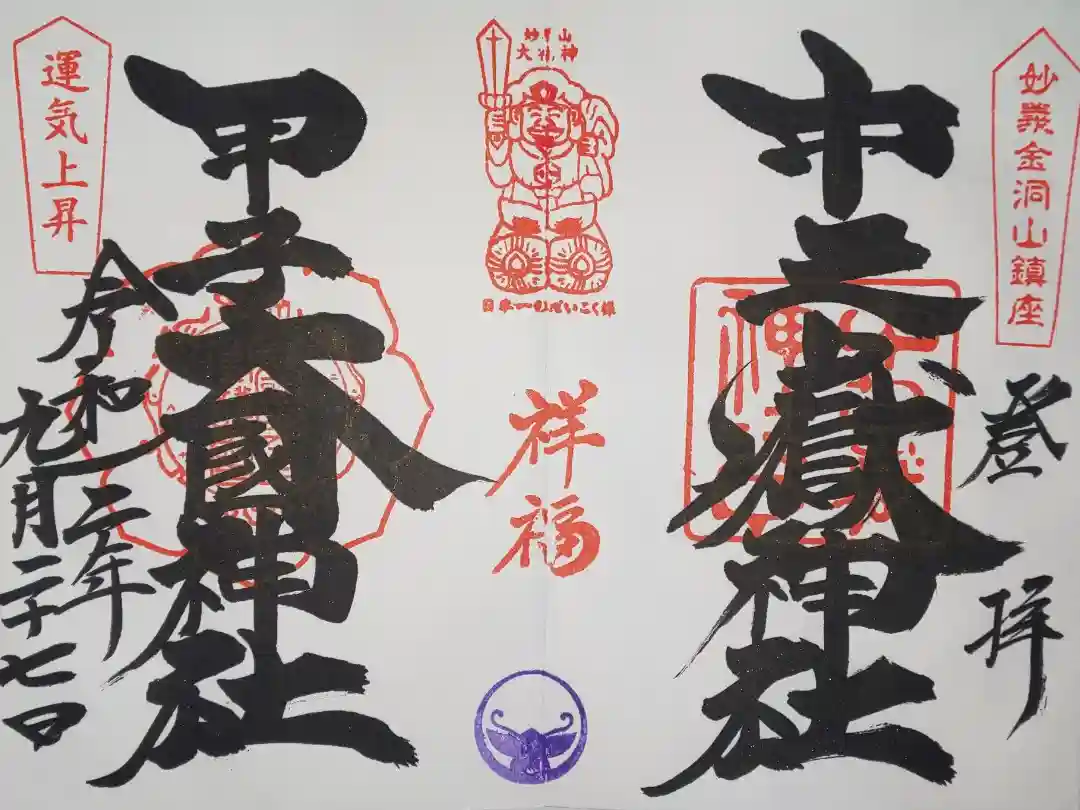 妙義金洞山鎮座
登拝
中之嶽神社
日本一のだいこく様
祥福
甲子大國神社
運気上昇
令和二年
九月二十七日